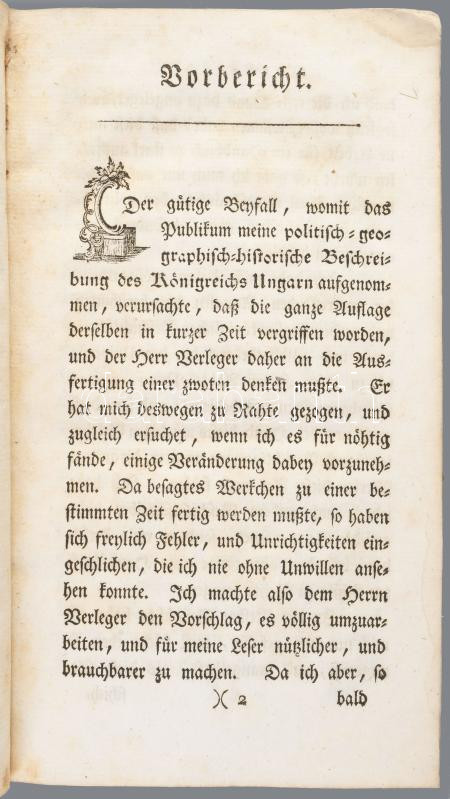 Vorbericht.
Der gütige Beyfall, womit das
Publikum meine politisch-geo-
graphisch-historische Beschrei-
bung des Königreichs Ungarn aufgenom-
men, verursachte, daß die ganze Auflage
derselben in kurzer Zeit vergriffen worden,
und der Herr Verleger daher an die Aus-
fertigung einer zwoten denken mußte. Er
hat mich deswegen zu Rahte gezogen, und
zugleich ersuchet, wenn ich es für nöhtig
fände, einige Veränderung dabey vorzuneh-
men. Da besagtes Werkchen zu einer be-
stimmten Zeit fertig werden mußte, so haben
sich freylich Fehler, und Unrichtigkeiten ein-
geschlichen, die ich nie ohne Unwillen anse-
hen konnte. Ich machte also dem Herrn
Verleger den Vorschlag, es völlig umzuar-
beiten, und für meine Leser nützlicher, und
brauchbarer zu machen. Da ich aber, so
)( 2 bald